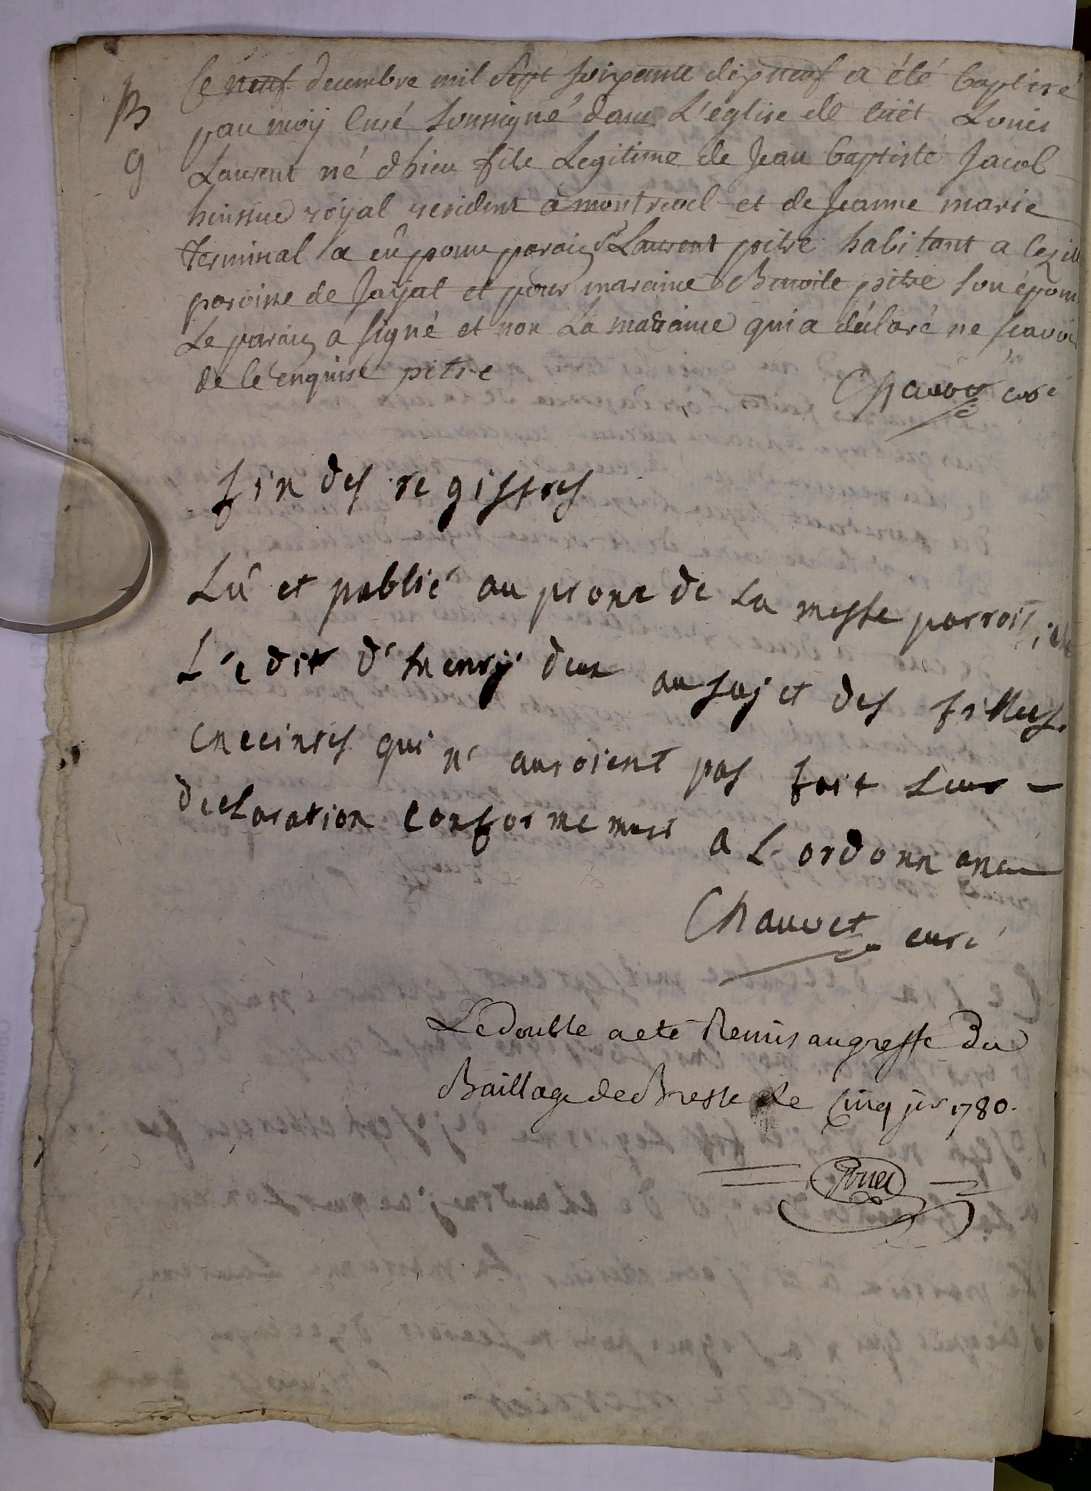 B
9
Ce neuf decembre mil sept soixante dixneuf a été baptisé
par moÿ curé soussigné dans L'église de cuët Louis
Laurent né d'hier fils Legitime de Jean baptiste Jacob
huissier roÿal resident à montrevel et de Jeanne marie
Terminal a eû pour parain Sr Laurent pitre habitant a
paroisse de Jayat et pour maraine Benoite pitre son épouse
Le parain a signé et non La maraine qui a déclaré ne scavoir
de ce enquise pitre
Chauvet curé
fin des registres
Lû et publié au prone de La messe parroissiale
L'edit d'henrÿ deux au sujet des filles
enceintes qui n'auroient pas fait Leur -
declaration conformement a L'ordonnance
Chauvet curé
Le double a eté Remis au greffe du
Baillage de Bresse le cinq jer 1780.